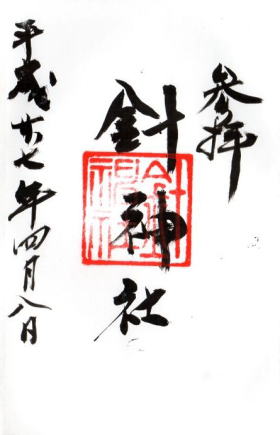 参拝
針神社
針神社
平成廿七年四月八日